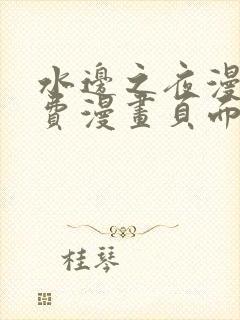 水邊之夜漫
費漫畫頁而
桂琴